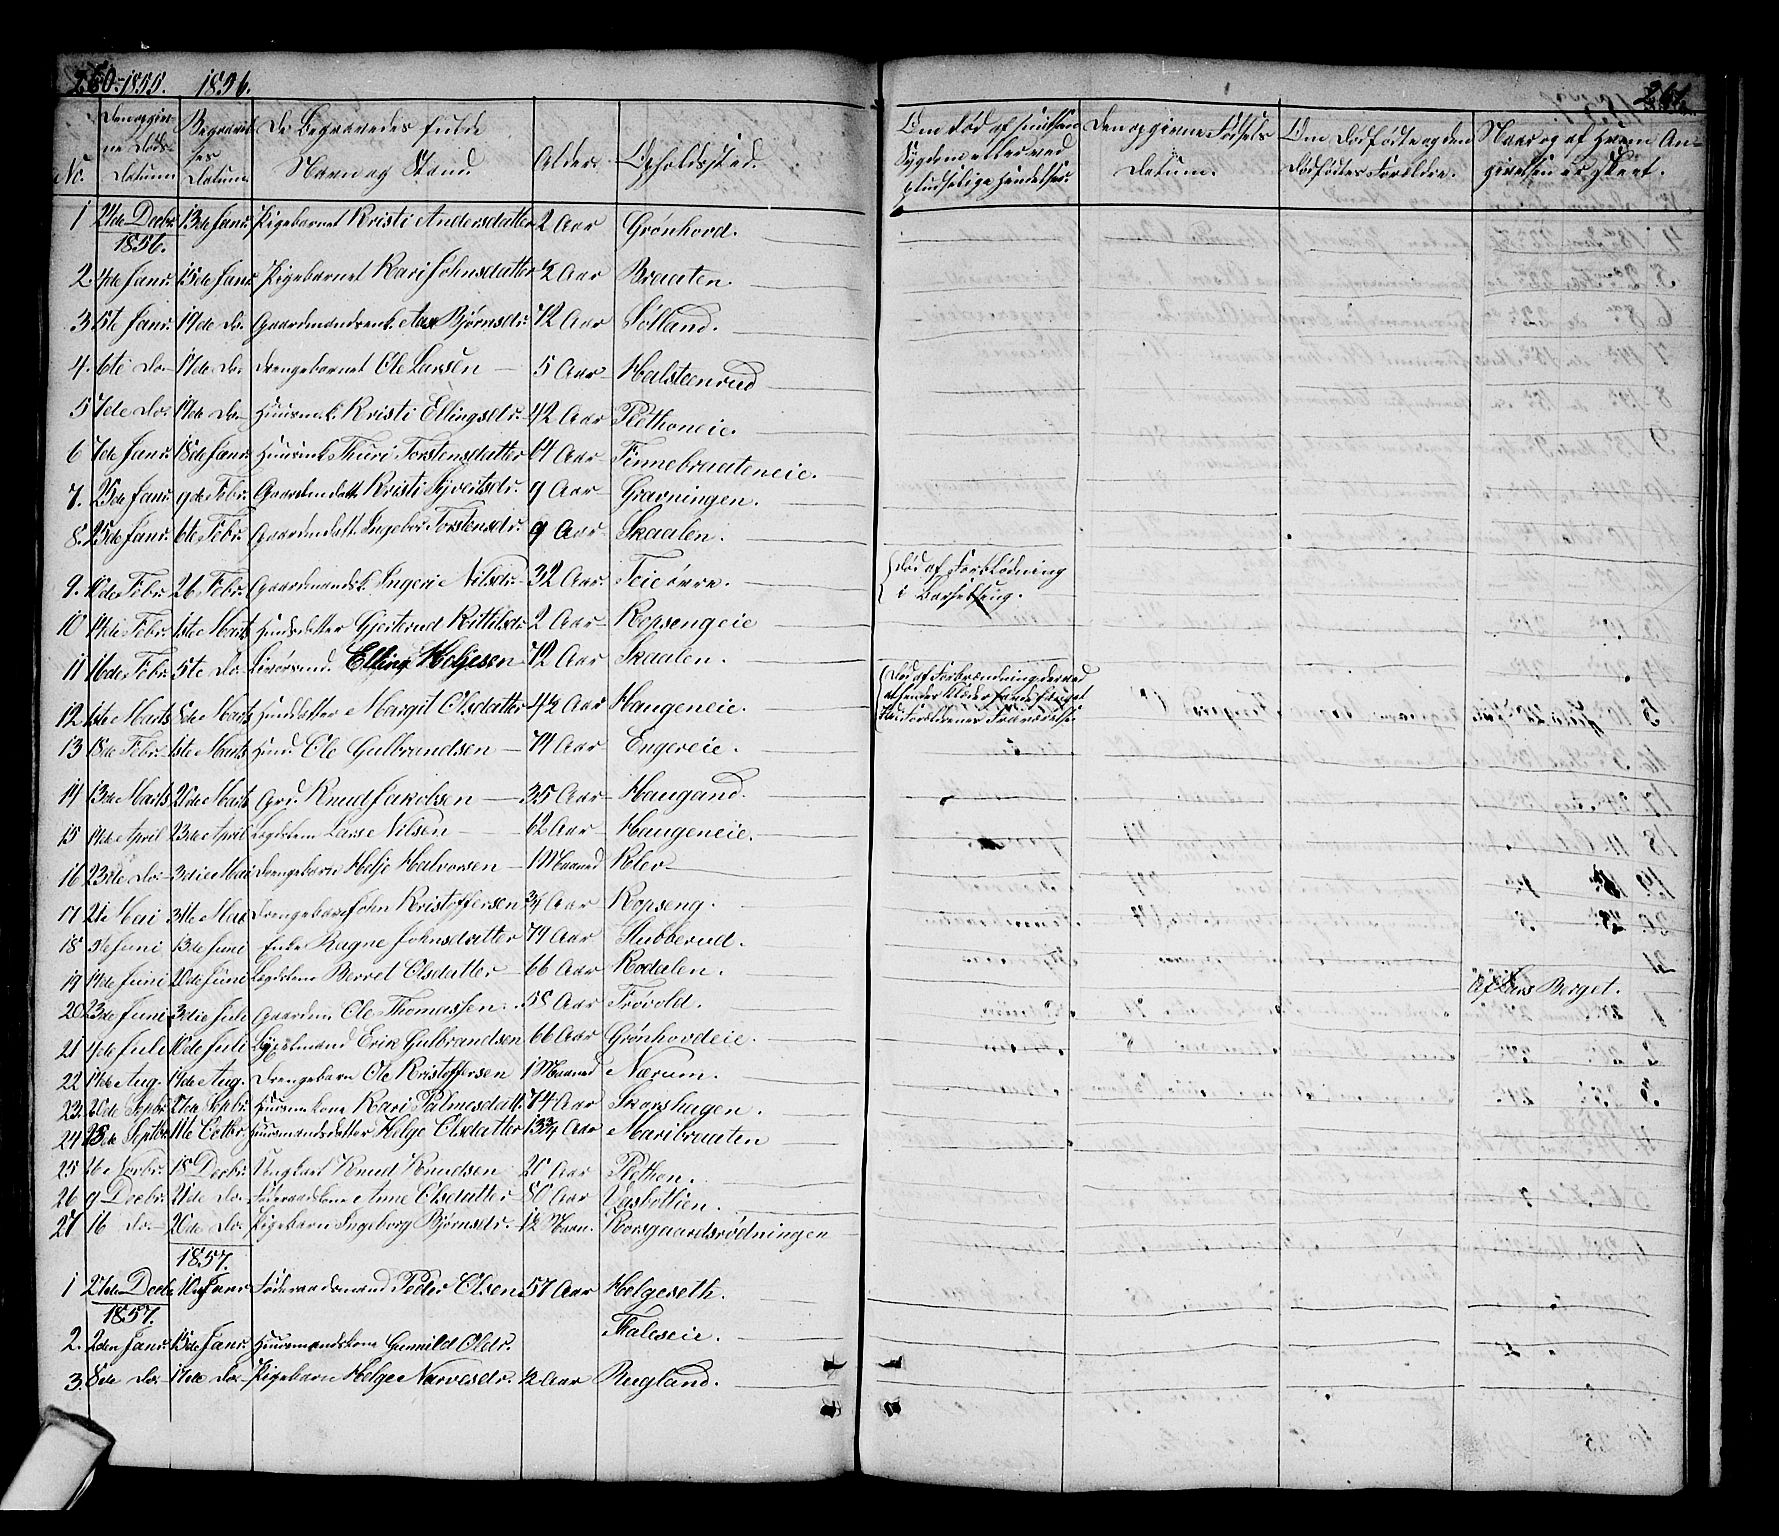 260. 1855. 1856.
No. Den opgivne Døds-Datum Begravelses Datum De Begravedes fulde Navn og Stand Alder. Opholdssted.
1 27de Decbr. 13de Janr. Pigebarnet Kristi Andersdatter 2 Aar Grønhovd.
1856.
2. 4de Janr. 15de Janr. Pigebarnet Kari Johnsdatter ½ Aar Braaten.
3 15te Janr. 19de do. Gaardmandsenk. Aase Bjørnsdr. 72 Aar Solland.
4. 6te do. 17de do. Drengebarnet Ole Larsen 5 Aar Halsteenrud
5 7de do. 19de do. Huusmk. Kristi Ellingsdr. 42 Aar Plethoneie.
6 7de Janr. 18de Janr. Huusmk. Thuri Torstensdatter 64 Aar Finnebraateneie.
7. 25de Janr. 9de Febr. Gaardmdatt. Kristi Syvertsdr. 9 Aar Gravningen.
8. 25de Janr. 6te Febr. Gaardmdatt. Ingebor Torstensdr. 9 Aar Skaalen.
9. 12de Febr. 26 Febr. Gaardmandsk. Ingeri Nilsdr. 32 Aar Teie øvre.
10 14de Febr. 1ste Marts Huusdatter Gjertrud Kittilsdr. 2 Aar Ropsengeie
11 16de Febr. 5te do. Livørsmd. Elling Holjesen 72 Aar Skaalen.
12. 1ste Marts 8de Marts Huusdatter Margit Olsdatter 4½ Aar Haugeneie.
13 18de Febr. 1ste Marts Huusmd. Ole Gulbrandsen 74 Aar Engereie.
14 13de Marts 26de Marts Grd. Knud Jakobsen 35 Aar Haugand.
15 14de April 23de April Lægdslem Lars Nilsen 62 Aar Haugeneie.
16 23de do. 3die Mai Drengebarn Holje Halvorsen 1 Maaned Klev
17 21 Mai 31te Mai Drengebarn John Kristoffersen ¾ Aar Ropseng.
18 5te Juni 13de Juni Enke Ragne Johnsdatter 74 Aar Stubberud.
19 14de Juni 20de Juni Lægdslem Berret Olsdatter 66 Aar Rodalen.
20 23de Juni 3die Juli Gaardm. Ole Thomassen. 58 Aar Frøvold.
21 4de Juli 12de Juli Erik Gulbrandsen 66 Aar Grønhovdeie.
22 14de Aug. 19de Aug. Drengebarn Ole Kristoffersen 1 Maaned Nærum.
23. 20de Sepbr. 27de Sepbr. Huusm kone Kari Palmesdatt. 74 Aar Skarshugen.
24. 28de Septbr. 11te Octbr. Huusmandsdatter Helge Olsdatter 13¾ Aar Maribraaten
25 26 Novbr. 18 Decbr. Ungkarl Knud Knudsen 20 Aar Plethon.
26 9 Decbr. 21de do. Føderaadskone Anne Olsdatter 80 Aar Vasbottien.
27 16 do. 20de do. Pigebarn Ingeborg Bjørnsdr. 12 Maan. Korsgaardsrødningen
1857.
1 27de Decbr. 10de Janr. Føderaadsmand Peder Olsen 57 Aar Helgeseth.
1857.
2. 2den Janr. 15de Janr. Huusmandskone Gunnild Olsdr. Faleseie.
3. 8de do. 17de do. Pigebarn Helge Narvesdr. ½ Aar Rugland.
261.
Om død af smitsom Sygdom eller ved pludselige Hændelser. Den opgivne Fødsels Datum. Om Dødfødte og den Dødfødtes Forældre. Naar og af hvem Angivelsen er skeet.
Død af Forblødning
i Barselseng.
Død af Forbrænding derved
at hendes Klæder fandt fænget
Forældrenes Fraværelse
Af Lars Berget.